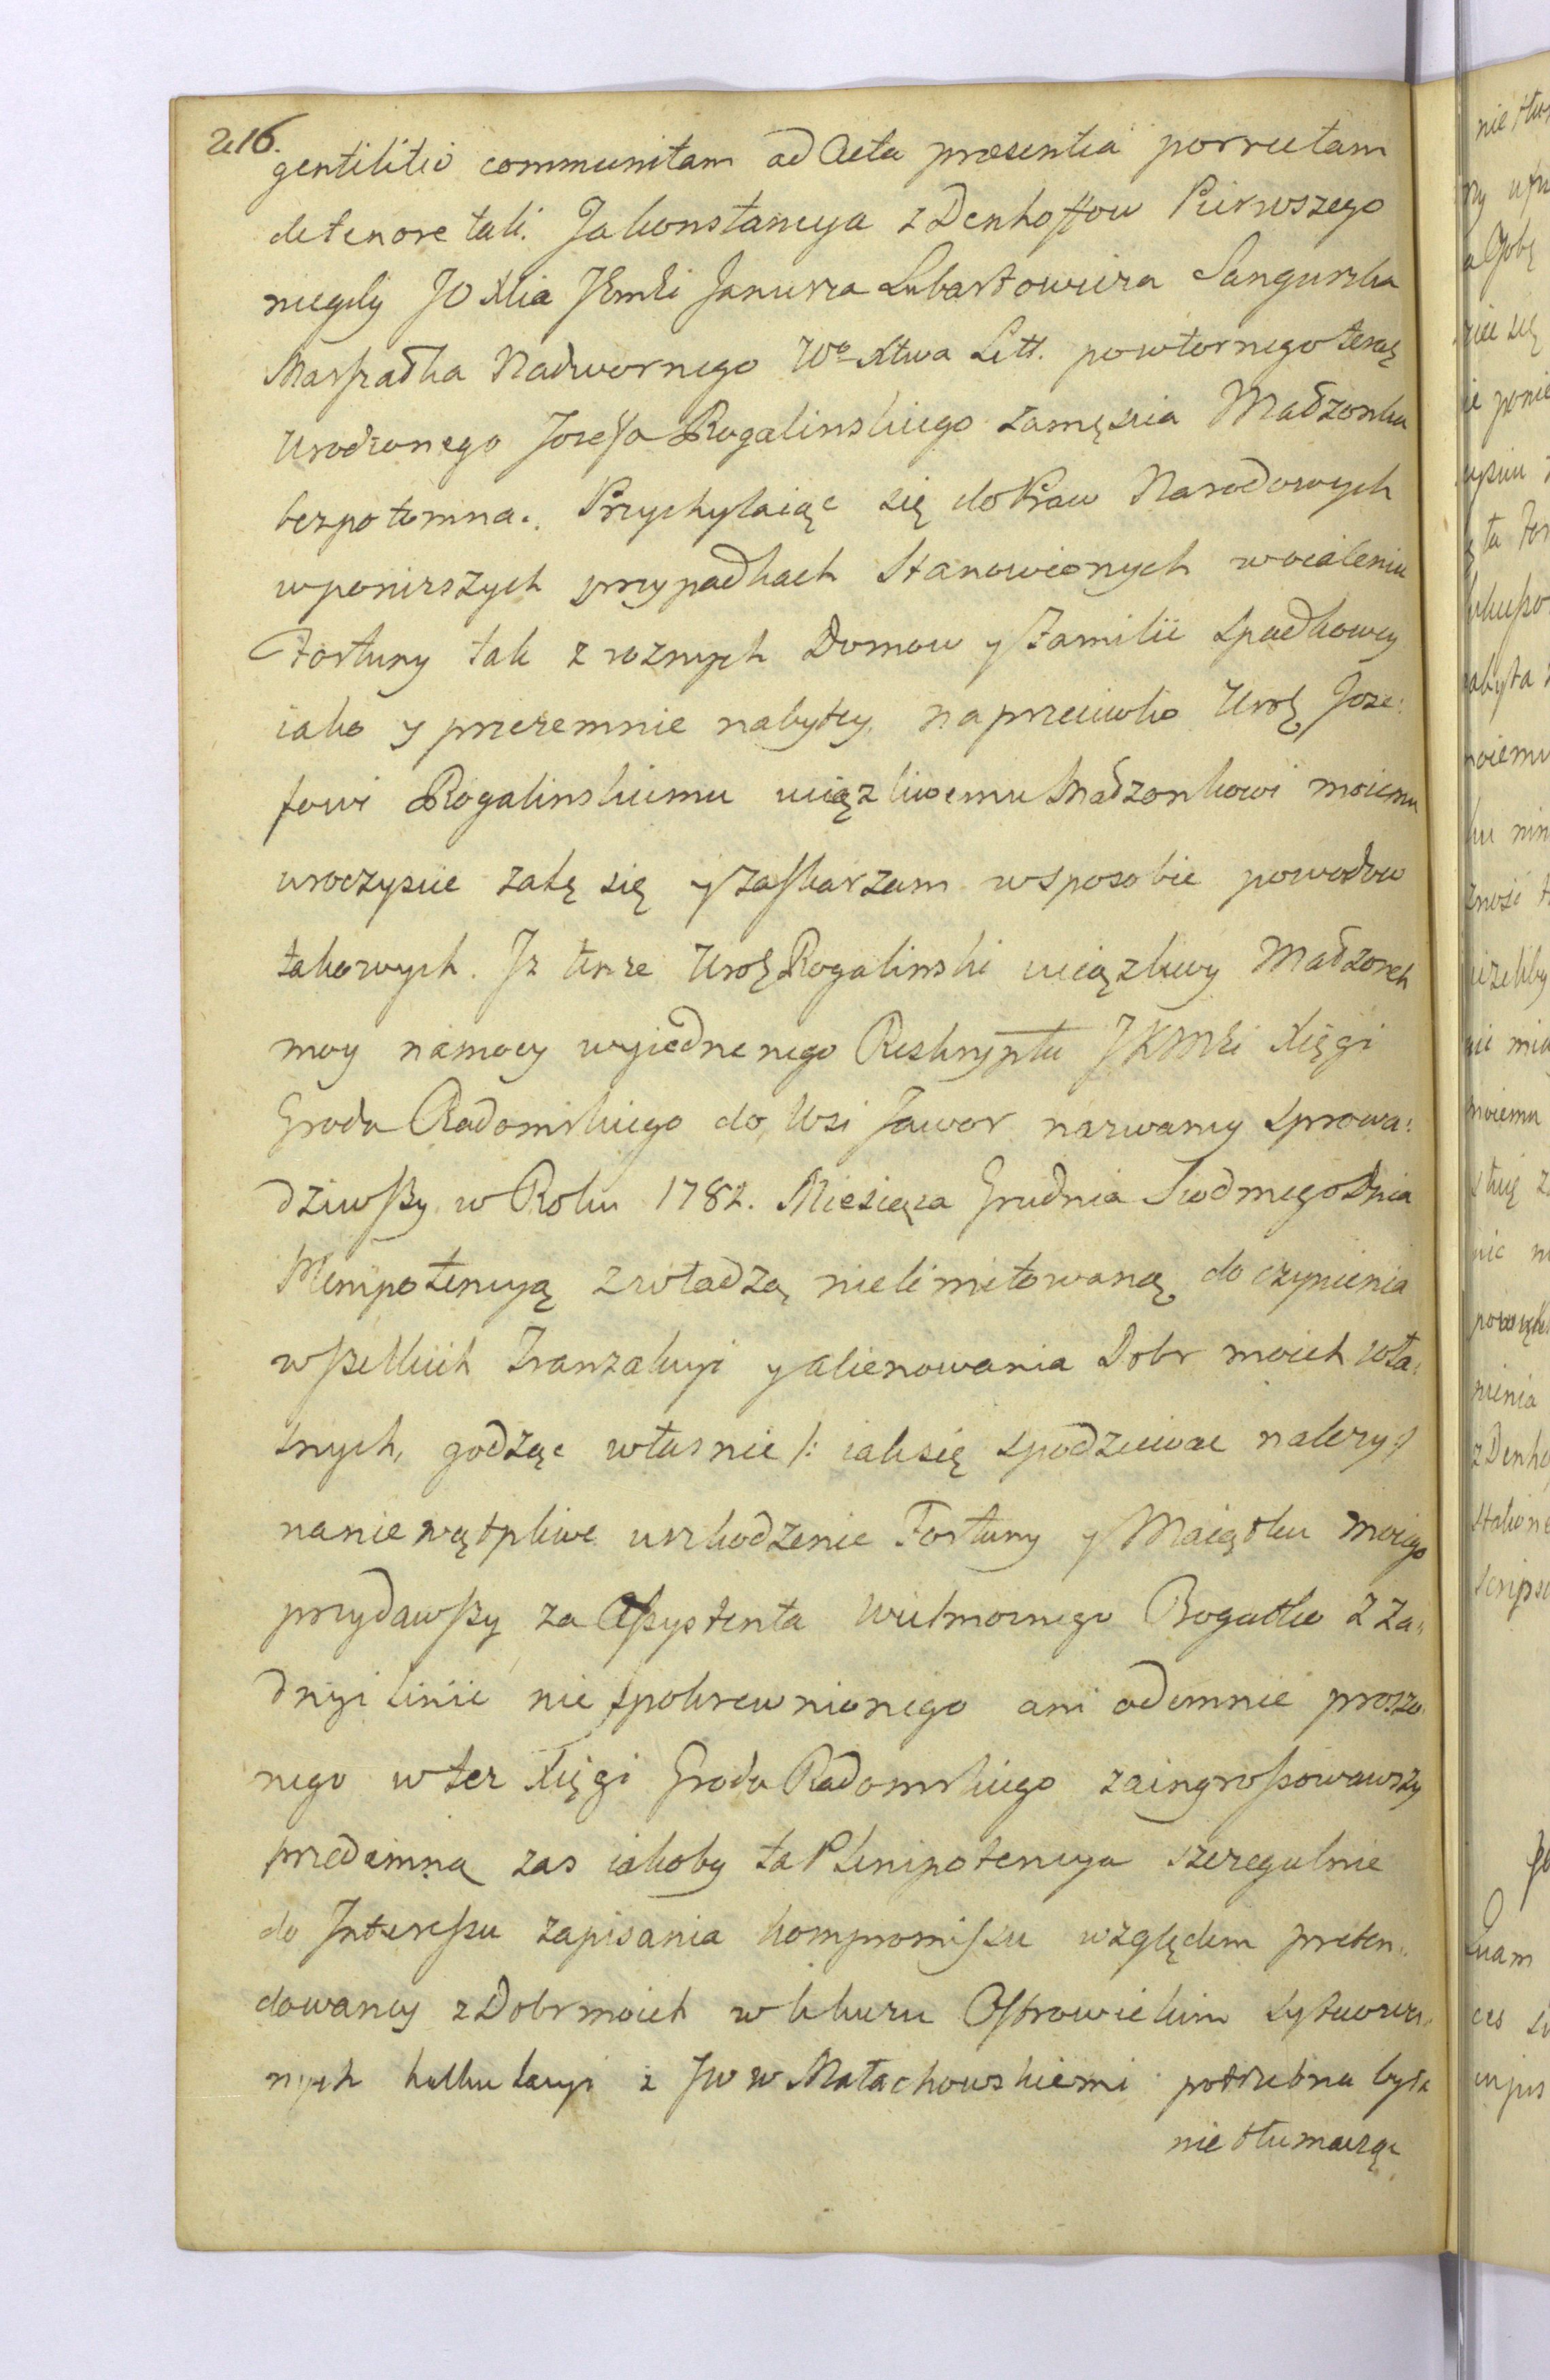 216.
gentilitio communitam ad Acta præsentia porrectam
de tenore tali. Ja Konstancya z Denhoffow Pierwszego
niegdy JO Xcia JEmści Janusza Lubartowicza Sanguszka
Marszałka Nadwornego Wo Xtwa Litt. powtornego teraz
Urodzonego Jozefa Rogalinskiego zamęscia Małzonka
bezpotomna. Przychylaiąc się do Praw Narodowych
w ponizszych przypadkach stanowionych w ocaleniu
Fortuny tak z roznych Domow y Familii spadkowey
iako y przezemnie nabytey, naprzeciwko Uroḍ Joze:
fowi Rogalinskiemu uciązliwemu Małzonkowi moiemu
uroczyscie załę się y zaskarzam w sposobie powodow
takowych. Jz tenze Urodz Rogalinski uciązliwy Małzonek
moy na mocy wyiednanego Reskryptu JKMści Xięgi
Grodu Radomskiego do Wsi Jawor nazwaney sprowa:
dziwszy w Roku 1782. Miesiąca Grudnia Siodmego Dnia
Plenipotencyą z władzą nielimitowaną do czynienia
wszelkich Tranzakcyi y alienowania Dobr moich wła:
snych, godząc własnie /: iak się spodziewac nalezy :/
na niewątpliwe uszkodzenie Fortuny y Maiątku moiego
przydawszy za Assystenta Wielmoznego Bogatko z za:
dnyi linii nie spokrewnionego ani odemnie proszo:
nego w tez Xięgi Grodu Radomskiego zaingrossowawszy
przedemną zas iakoby ta Plenipotencya szczegulnie
do Interessu zapisania kompromissu względem preten:
dowaney z Dobr moich w Kluczu Ostrowieckim sytuowa:
nych kalkulacyi z JWW Małachowskiemi potrzebna była
nie tłumacząc